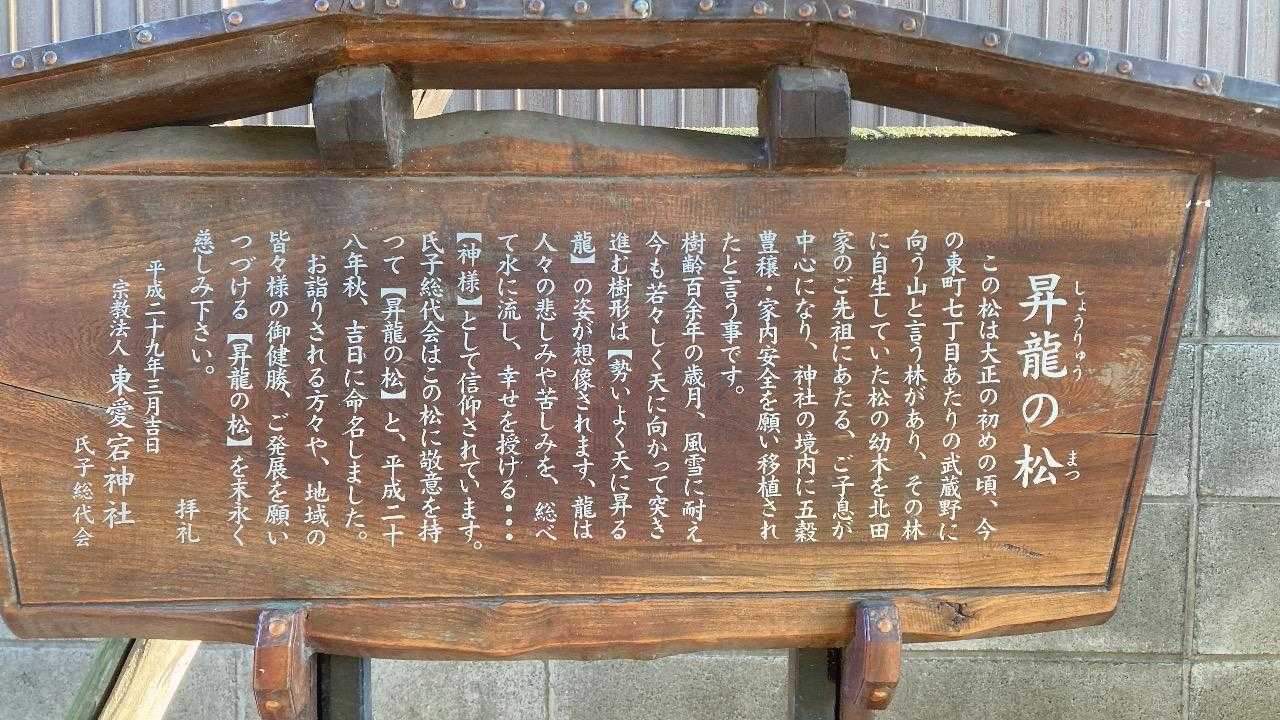 昇龍の松
しょうりゅう まつ
この松は大正の初めの頃、今
の東町七丁目あたりの武蔵野に
向う山と言う林があり、その林
に自生していた松の幼木を北田
家のご先祖にあたる、ご子息が
中心になり、神社の境内に五穀
豊穣・家内安全を願い移植され
たと言う事です。
樹齢百余年の歳月、風雪に耐え
今も若々しく天に向かって突き
進む樹形は【勢いよく天に昇る
龍】の姿が想像されます、龍は
人々の悲しみや苦しみを、総べ
て水に流し、幸せを授ける・・・
【神様】として信仰されています。
氏子総代会はこの松に敬意を持
つて【昇龍の松】と、平成二十
八年秋、吉日に命名しました。
お詣りされる方々や、地域の
皆々様の御健勝、ご発展を願い
つづける【昇龍の松】を末永く
慈しみ下さい。
拝礼
平成二十九年三月吉日
宗教法人 東愛宕神社
氏子総代会